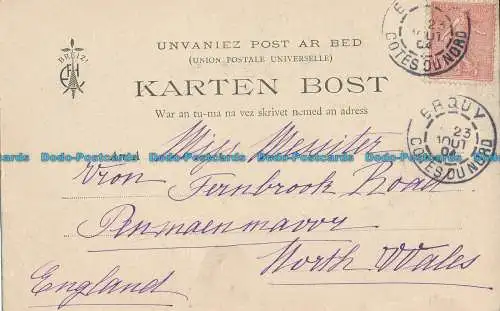 BREIZ
UNVANIEZ POST AR BED
(UNION POSTALE UNIVERSELLE)
KARTEN BOST
War an tu-ma na vez skrivet nemed an adress
23
AOUT
04
COTES DU NORD
ERQUY
23
AOUT
04
COTES DU NORD
Miss Messiter
Vron Fernbrook Road
Penmaenmavor
North Wales
England
Dodo-Postcards Dodo-Postcards Dodo-Postcards Dodo-Postcards
Dodo-Postcards Dodo-Postcards Dodo-Postcards Dodo-Postcards